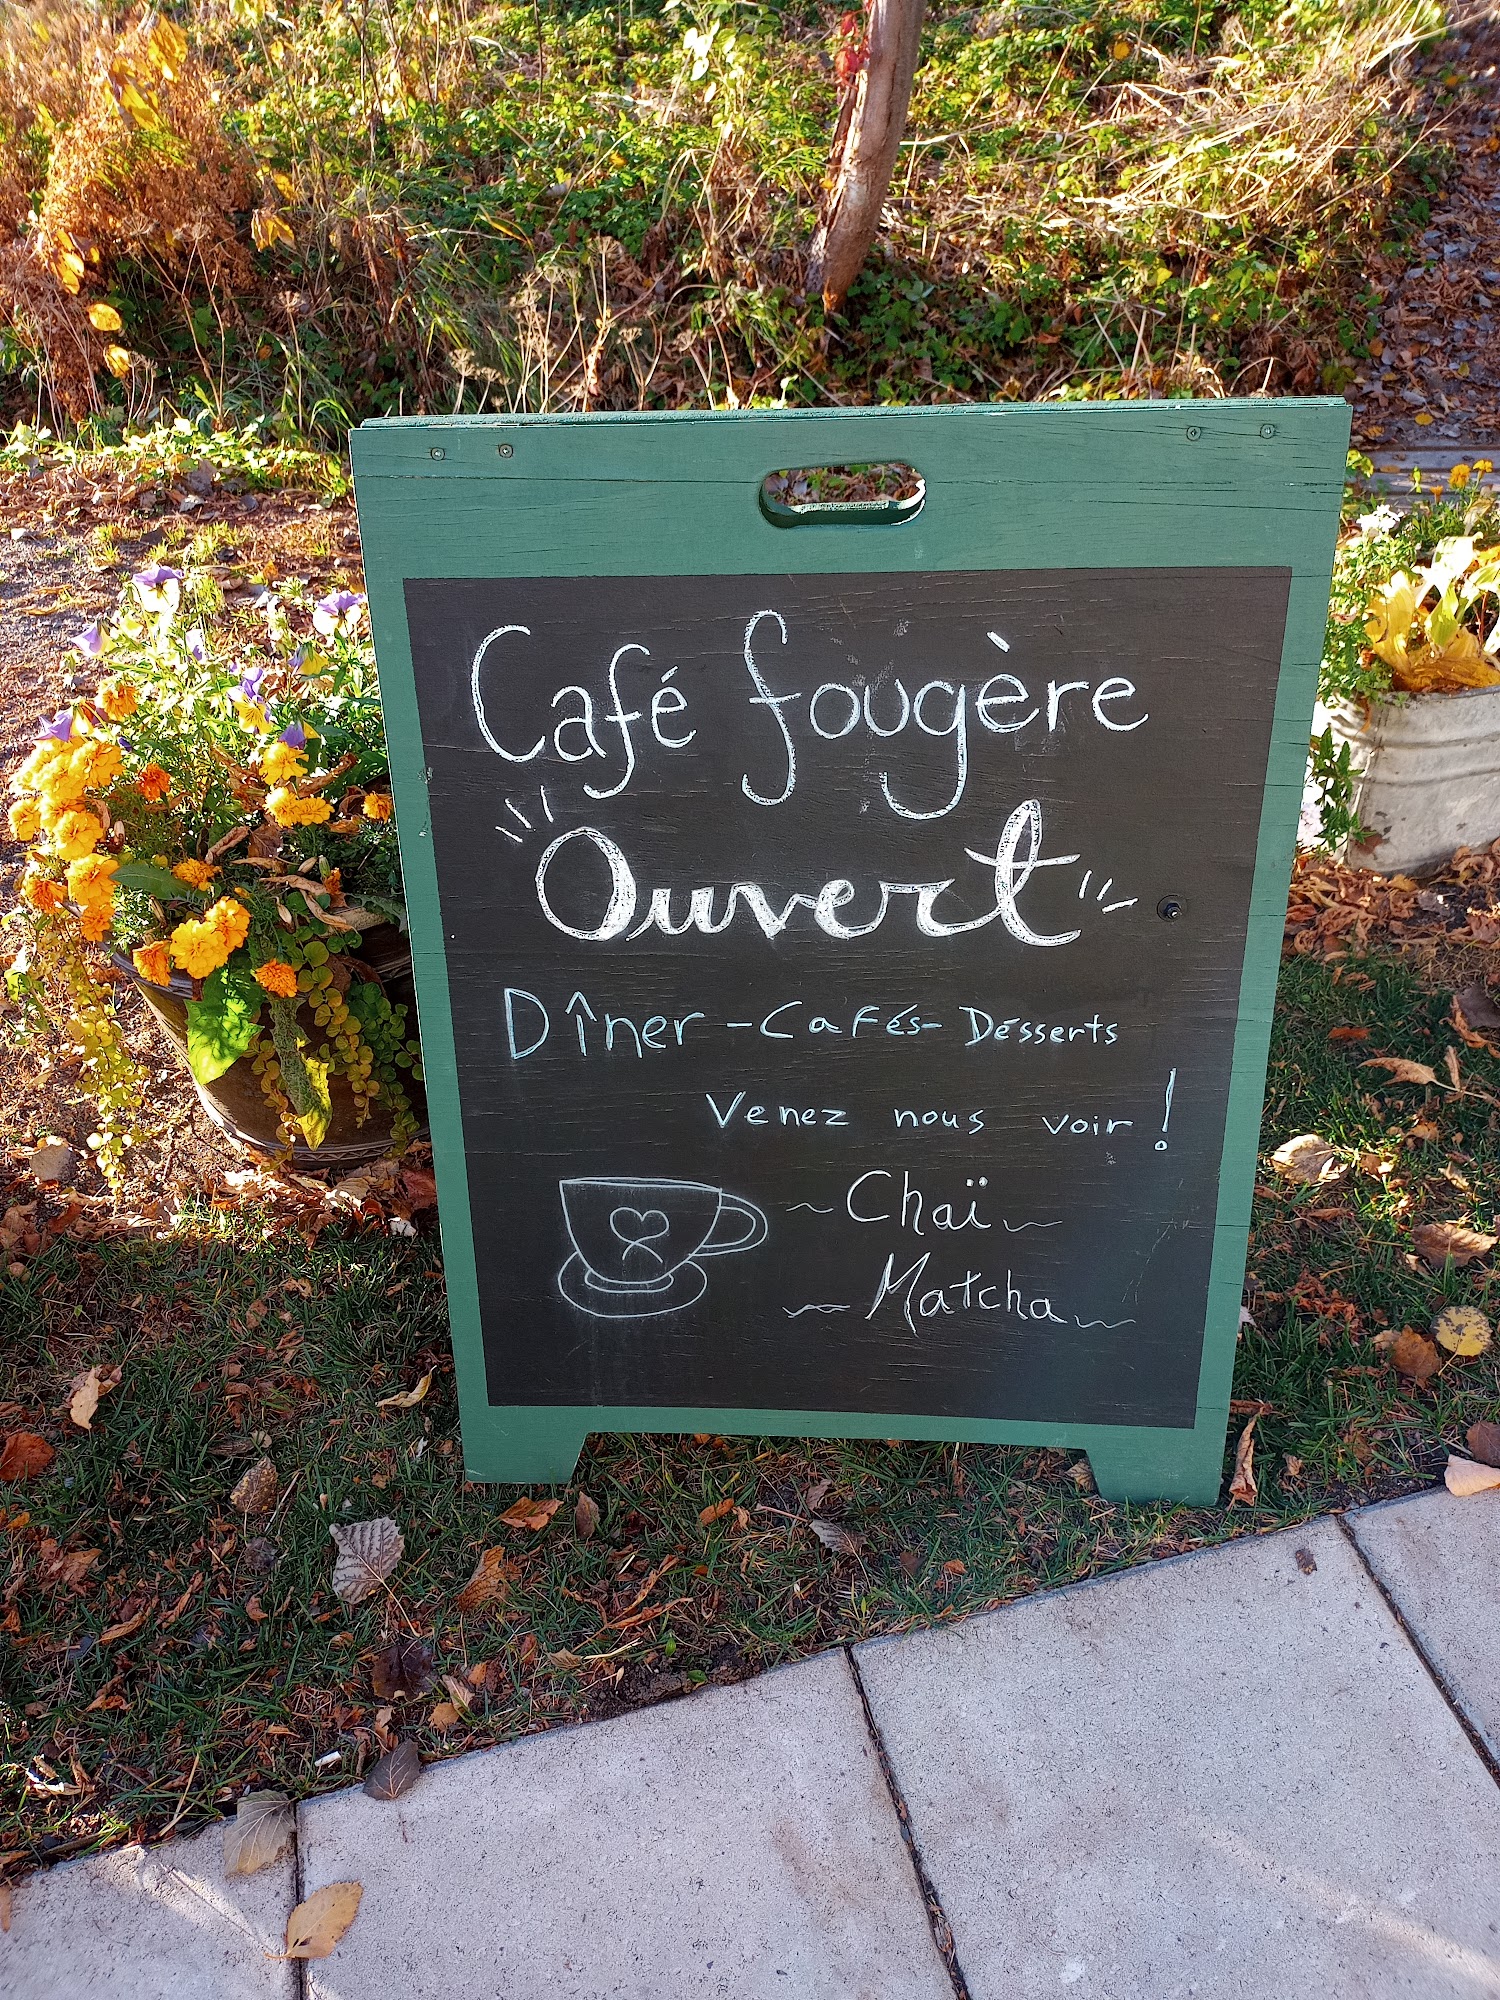 Café fougère
Ouvert
Dîner - Cafés - Désserts
Venez nous voir !
~ Chaï ~
~ Matcha ~